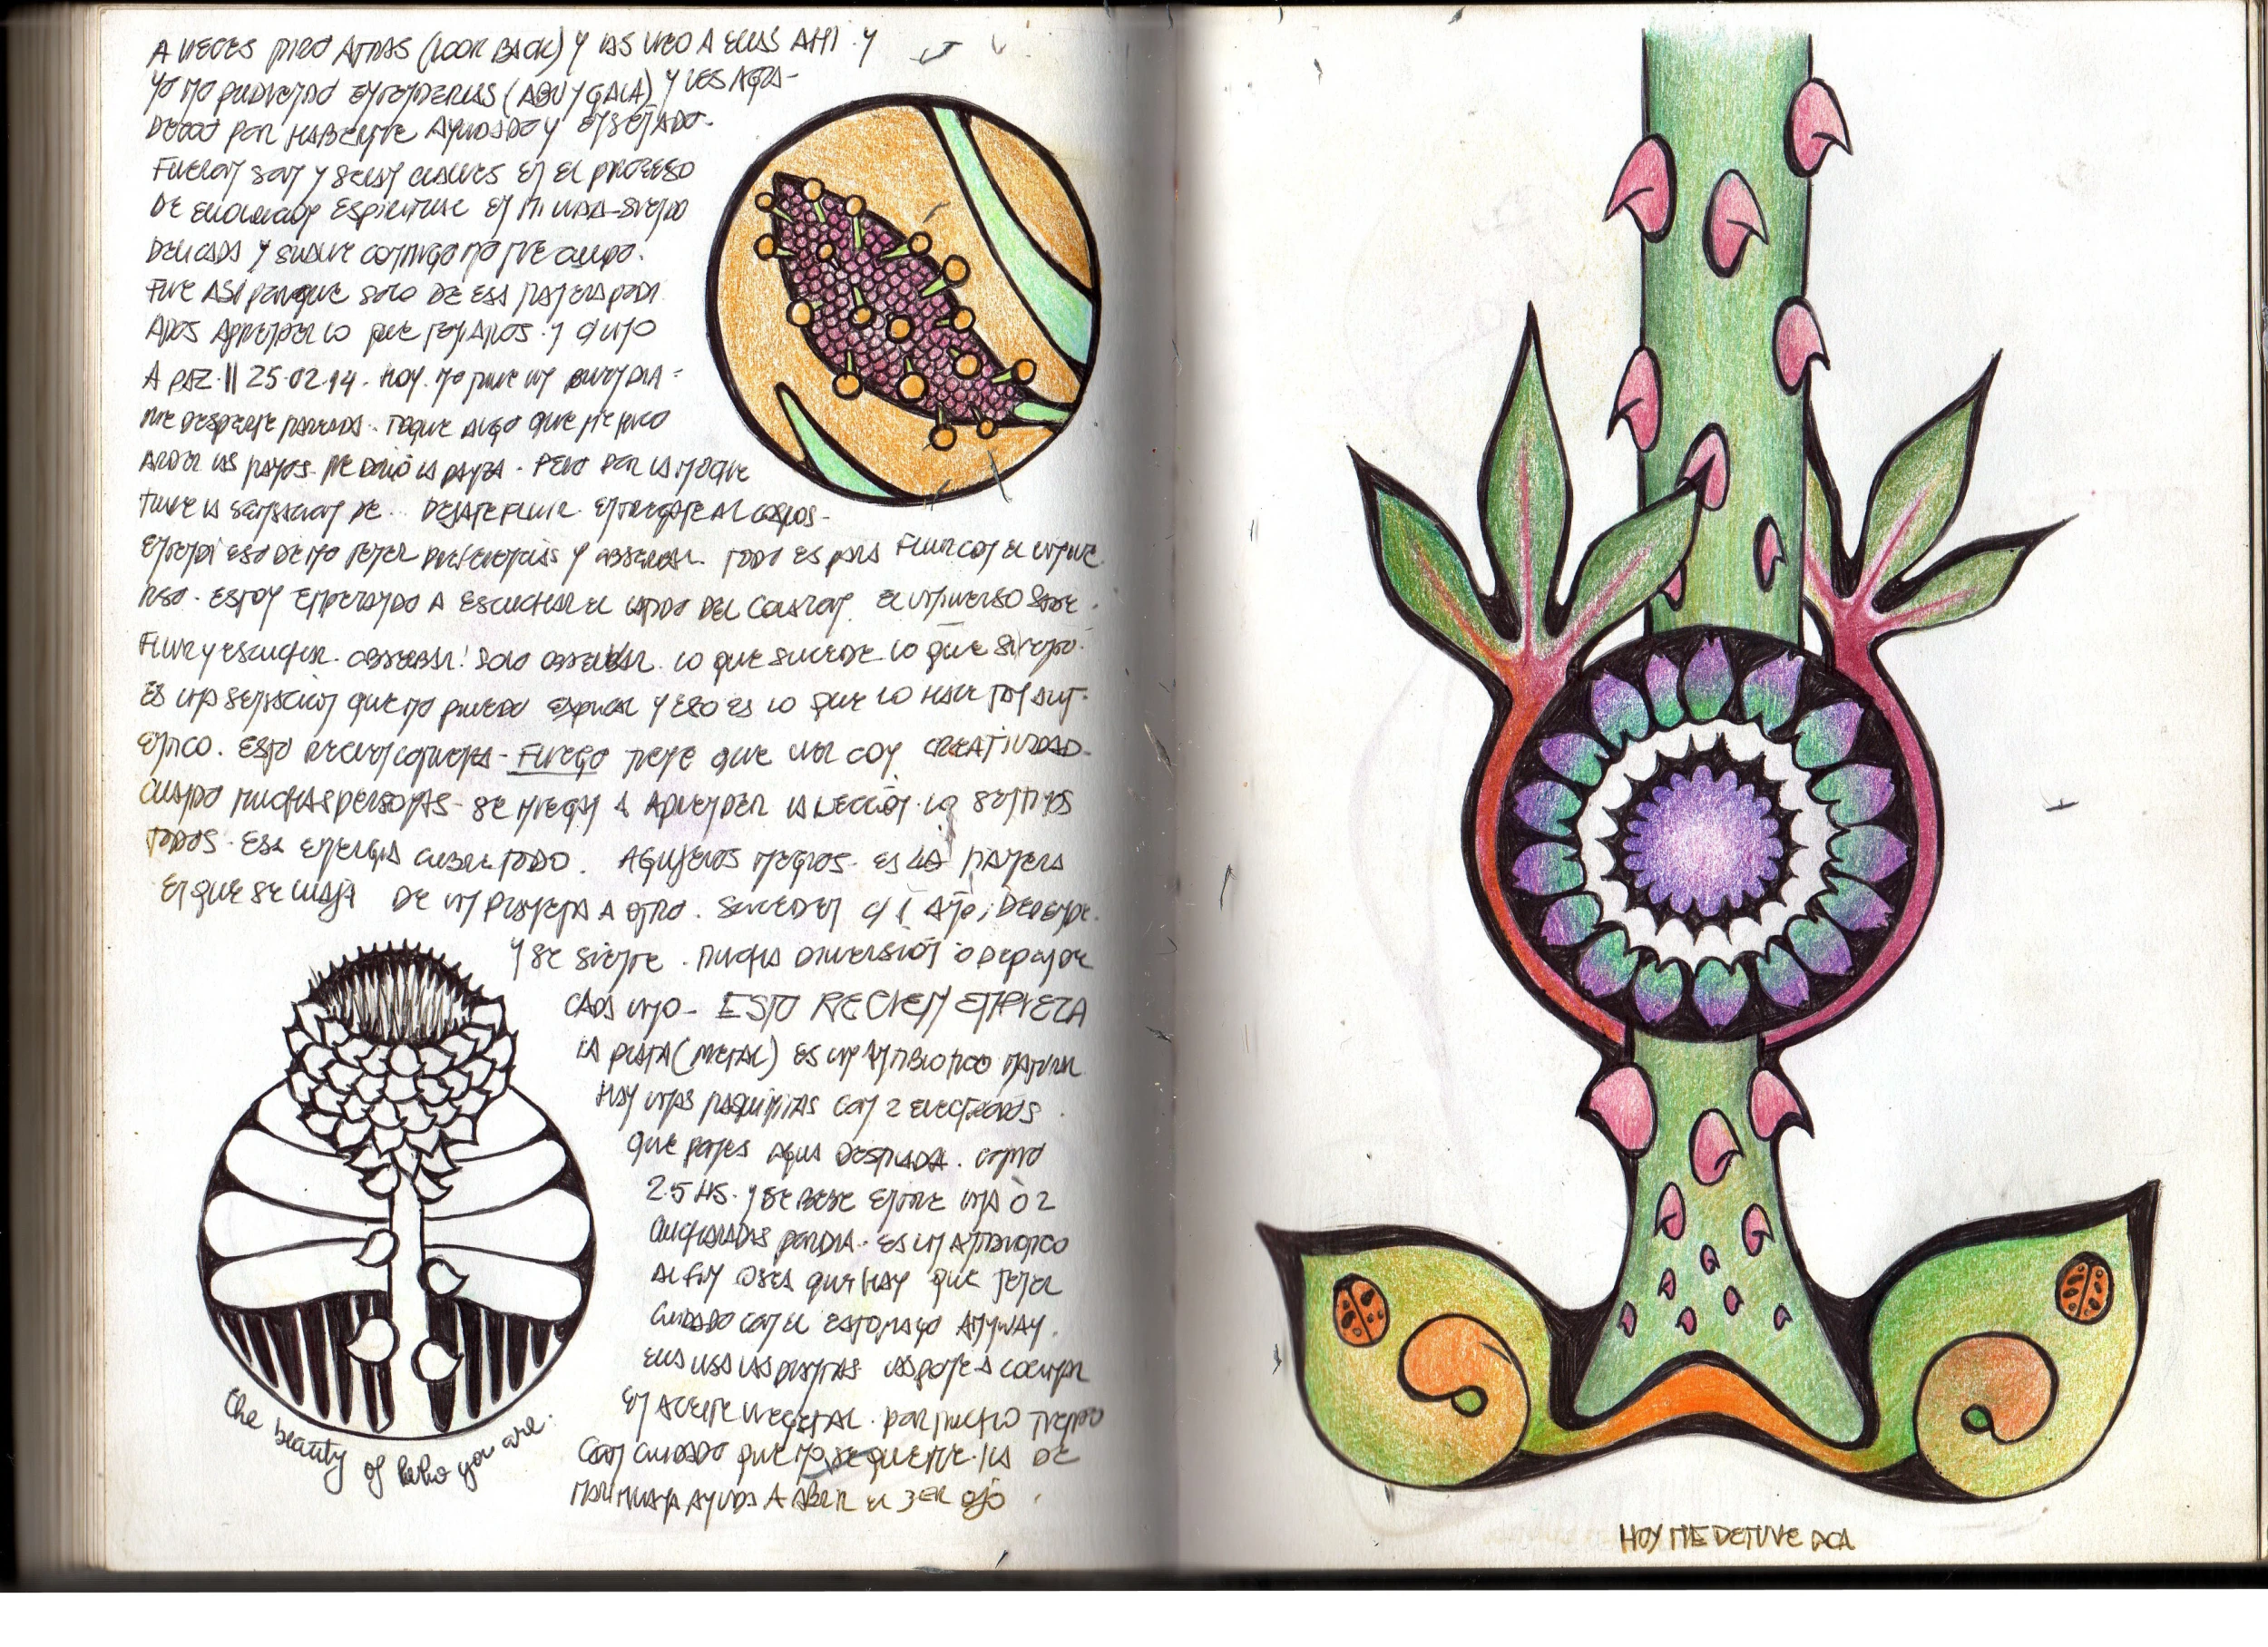 A VECES MIRO ATRAS (LOOK BACK) Y LAS VEO A ELLAS AHI. Y
YO NO PUDIENDO ENTENDERLAS (ABU Y GAIA) Y LES AGRA-
DEZCO POR HABERME AYUDADO Y ENSEÑADO.
FUERON SON Y SERAN CLAVES EN EL PROCESO
DE EVOLUCION ESPIRITUAL EN MI VIDA - SIENDO
DELICADA Y SUAVE CONMIGO NO ME CULPO.
FUE ASI PORQUE SOLO DE ESA MANERA PODI
AMOS APRENDER LO QUE TENIAMOS. Y
A PAZ. || 25.02.14. HOY. NO TUVE UN BUEN DIA =
ME DESPERTE MAREADA. TOQUE ALGO QUE ME HIZO
ARDER LAS MANOS. ME DOLIÓ LA PANZA. PERO POR LA NOCHE
TUVE LA SENSACION DE... DEJATE FLUIR. ENTREGATE AL COSMOS-
ENTENDI ESO DE NO TENER PREFERENCIAS Y OBSERVAR. TODO ES PARA FLUIR CON EL UNIVE
RSO. ESTOY EMPEZANDO A ESCUCHAR EL LATIDO DEL CORAZON. EL UNIVERSO SABE.
FLUIR Y ESCUCHAR. OBSERVAR! SOLO OBSERVAR. LO QUE SUCEDE. LO QUE SIENTO.
ES UNA SENSACION QUE NO PUEDO EXPLICAR Y ESO ES LO QUE LO HACE TAN AUT-
ENTICO. ESTO RECIEN COMIENZA - FUEGO TIENE QUE VER CON CREATIVIDAD-
CUANDO MUCHAS PERSONAS - SE NIEGAN A APRENDER LA LECCIÓN. LO SENTIMOS
TODOS. ESA ENERGIA CUBRE TODO. AGUJEROS NEGROS. ES LA MANERA
EN QUE SE VIAJA DE UN PLANETA A OTRO. SUCEDEN C/ 1 AÑO; DEPENDE.
Y SE SIENTE. MUCHA DIVERSIÓN O DEPENDE
CADA UNO - ESTO RECIEN EMPIEZA
LA PLATA (METAL) ES UN ANTIBIOTICO NATURAL
HAY UNAS MAQUINITAS CON 2 ELECTRODOS
QUE PONES AGUA DESTILADA. COMO
2.5 HS. Y SE BEBE ENTRE UNA Ó 2
CUCHARADAS POR DIA. ES UN ANTIBIOTICO
AL FIN OSEA QUE HAY QUE TENER
CUIDADO CON EL ESTOMAGO ANYWAY.
ELLA USA LAS PLANTAS LAS PONE A COCINAR
EN ACEITE VEGETAL. POR MUCHO TIEMPO
CON CUIDADO QUE NO SE QUEME. LA DE
MARIHUANA AYUDA A ABRIR EL 3ER OJO.
the beauty of who you are.
HOY ME DETUVE ACA